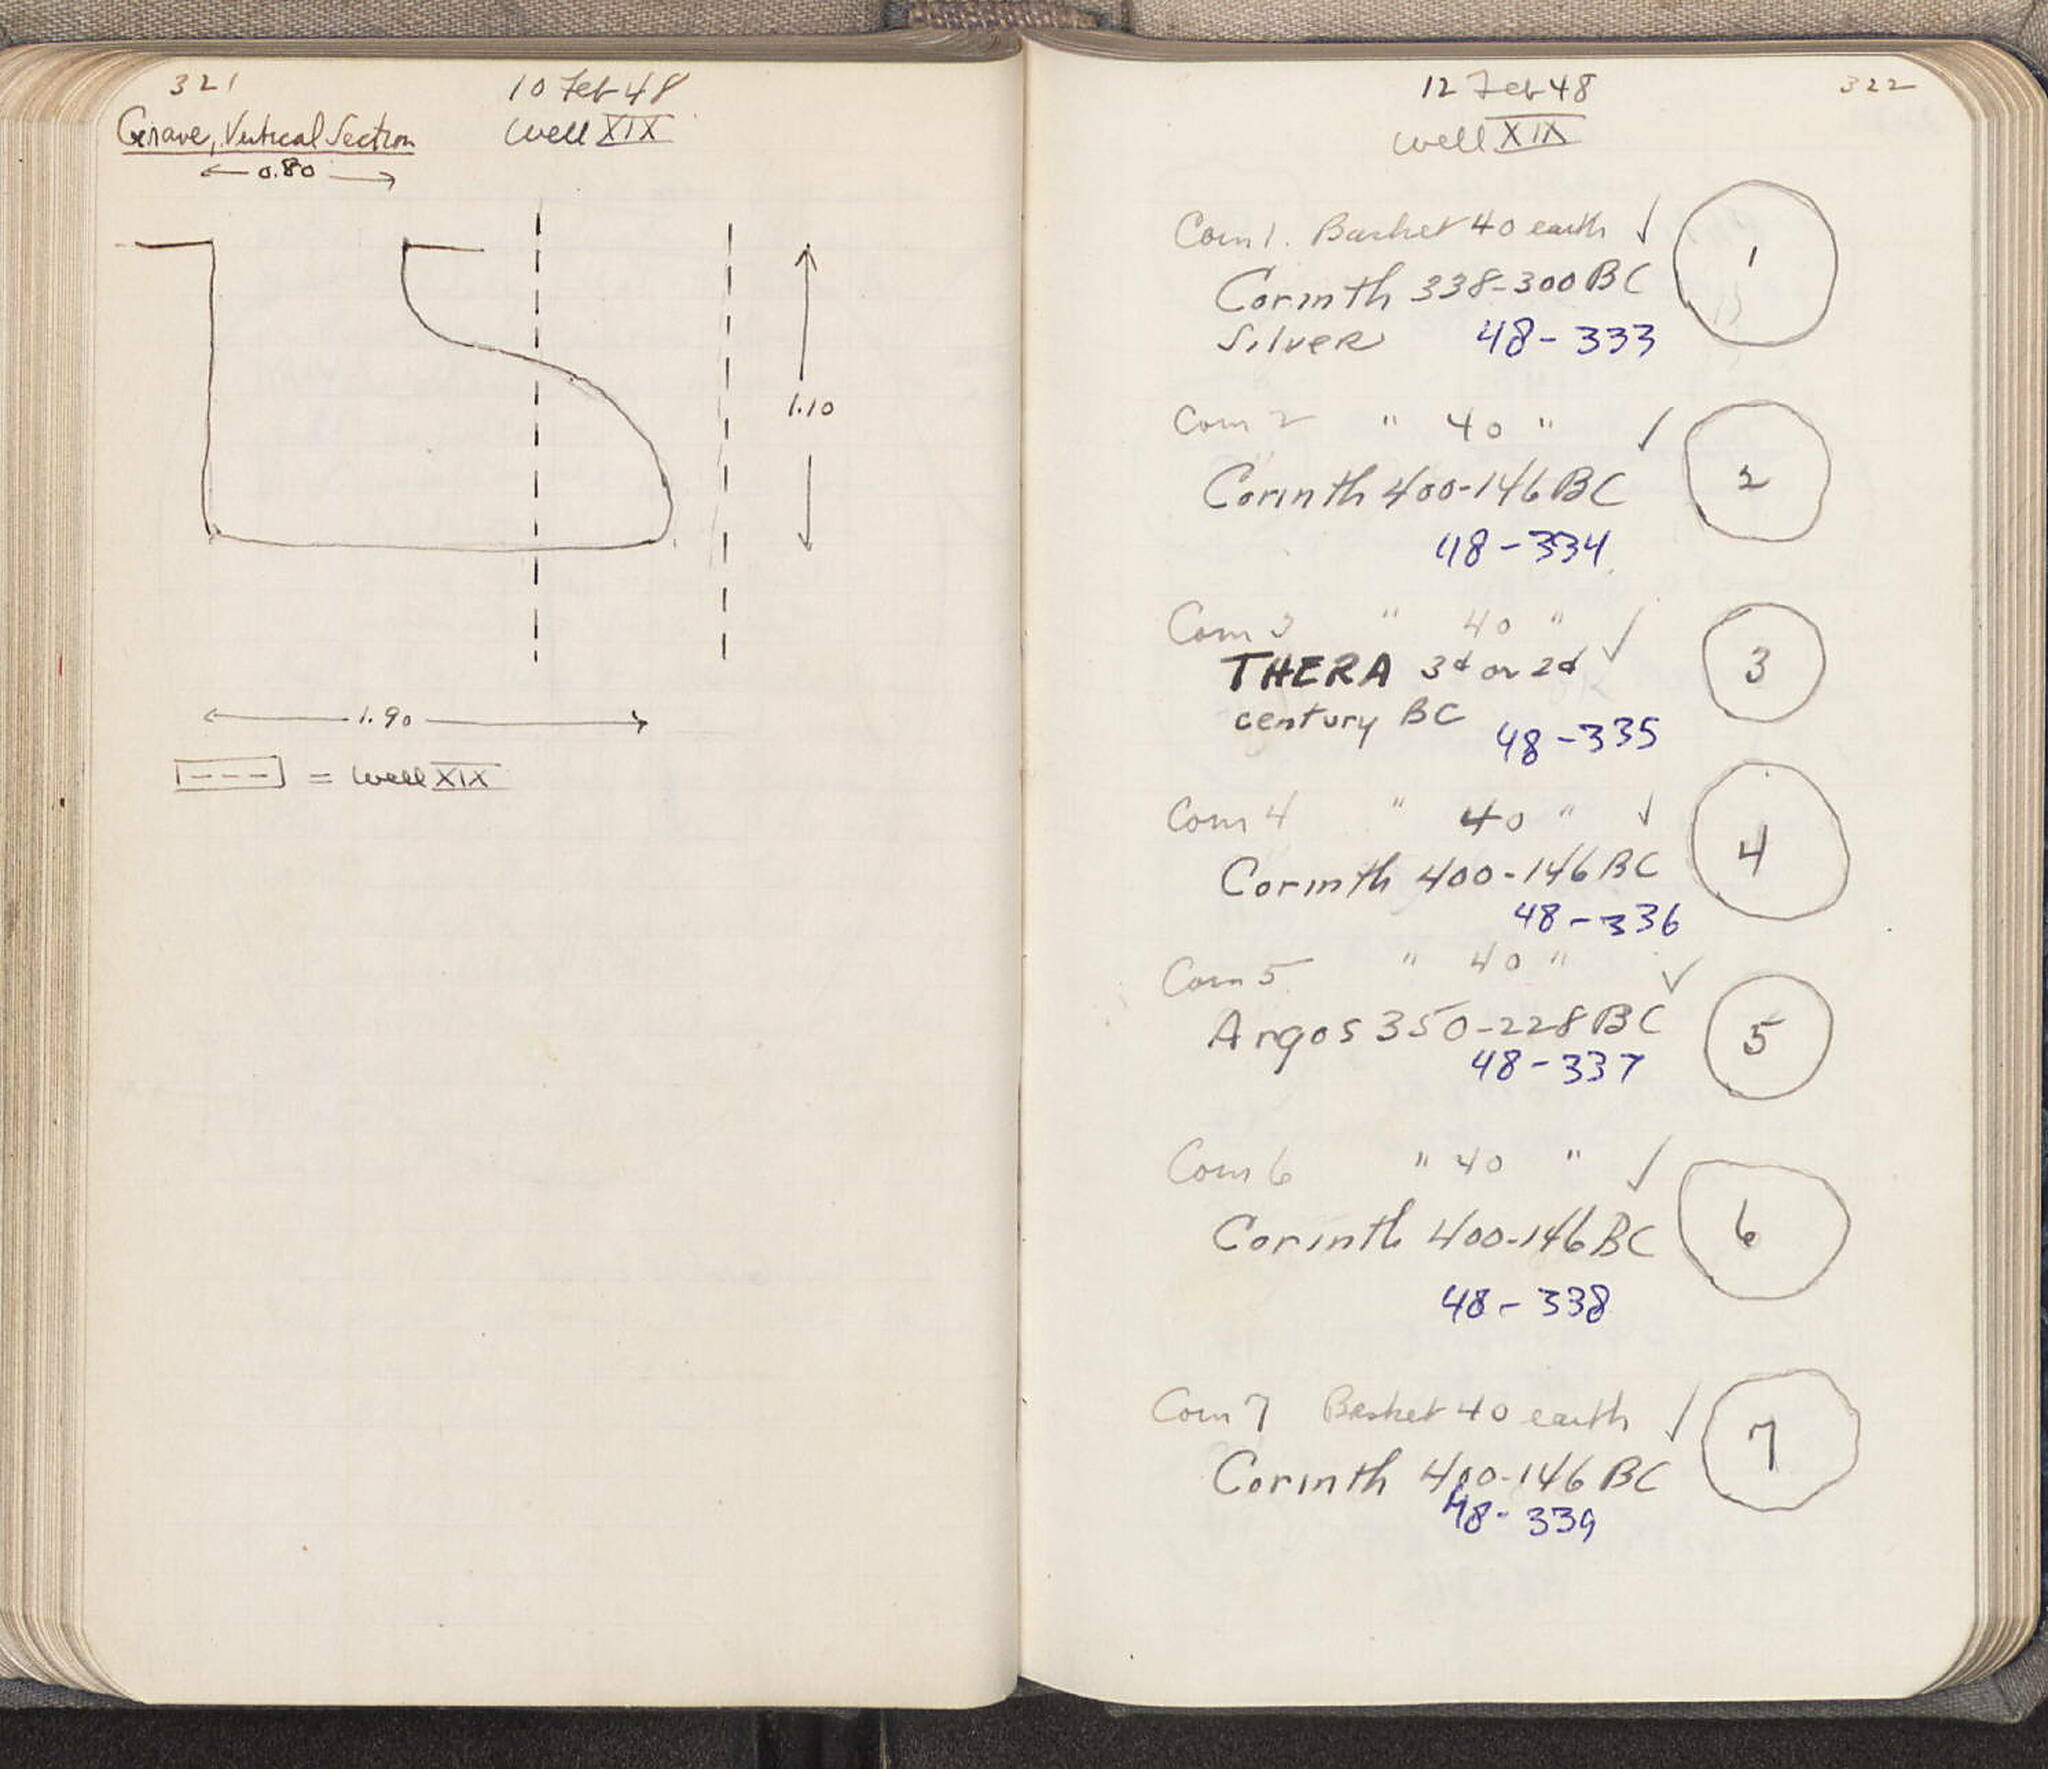 321
10 Feb 48
Grave, Vertical Section
Well XIX
0.80
1.10
1.90
= Well XIX
12 Feb 48
322
Well XIX
Coin 1. Basket 40 earth ✓
1
Corinth 338-300 BC
Silver 48-333
Coin 2 " 40 " ✓
2
Corinth 400-146 BC
48-334
Coin 3 " 40 " ✓
3
THERA 3d or 2d
century BC 48-335
Coin 4 " 40 " ✓
4
Corinth 400-146 BC
48-336
Coin 5 " 40 " ✓
5
Argos 350-228 BC
48-337
Coin 6 " 40 " ✓
6
Corinth 400-146 BC
48-338
Coin 7 Basket 40 earth ✓
7
Corinth 400-146 BC
48-339